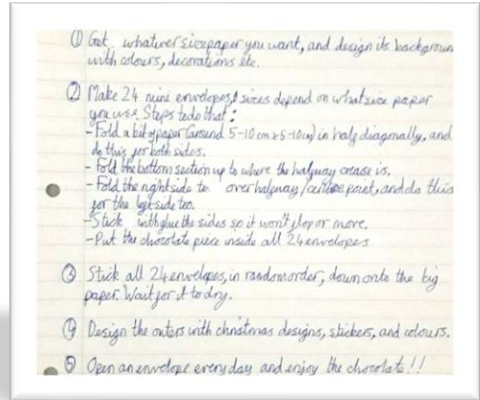 ① Get whatever size paper you want, and design its backgroun
with colours, decorations etc.
② Make 24 mini envelopes, sizes depend on what size paper
you use. Steps to do that:
- Fold a bit of paper (around 5-10cm x 5-10cm) in half diagonally, and
do this for both sides.
- Fold the bottom section up to where the halfway crease is.
- Fold the right side to over halfway / centre point, and do this
for the left side too.
- Stick with glue the sides so it won't flop or move.
- Put the chocolate piece inside all 24 envelopes
③ Stick all 24 envelopes, in random order, down onto the big
paper. Wait for it to dry.
④ Design the outers with christmas designs, stickers, and colours.
⑤ Open an envelope every day and enjoy the chocolate!!